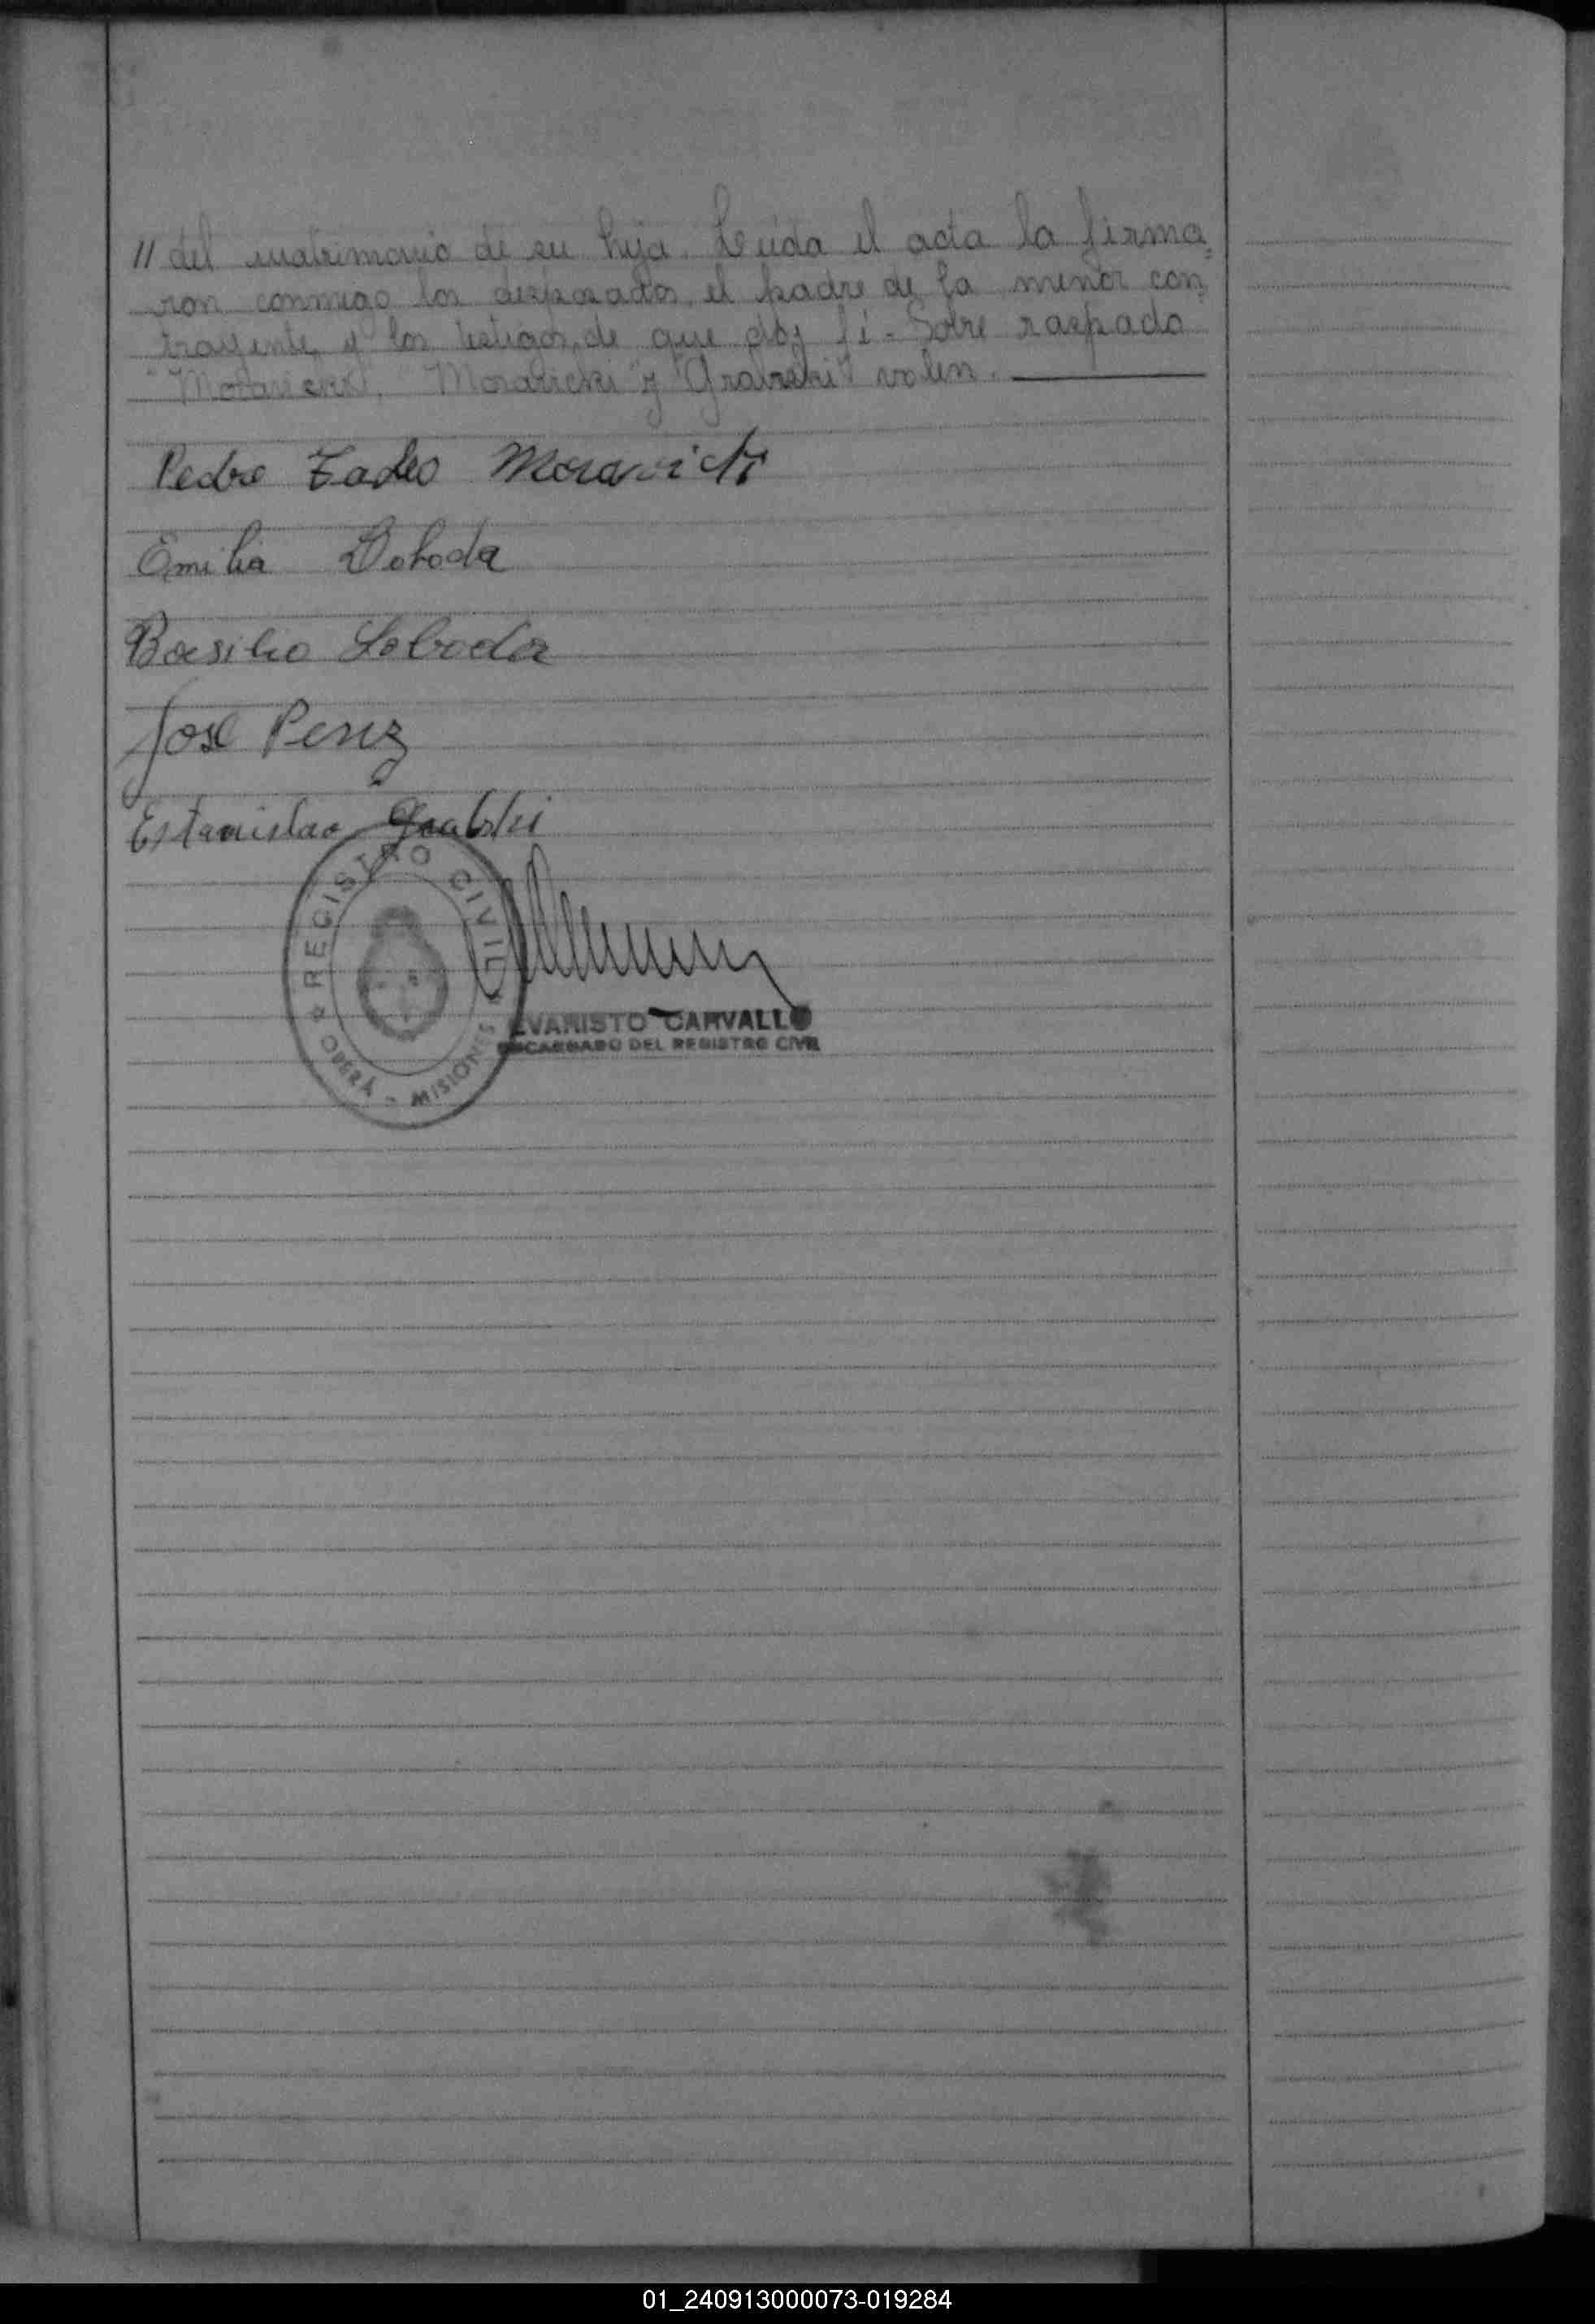 // del matrimonio de su hija. Leída el acta la firma=
ron conmigo los desposados, el padre de la menor con=
trayente y los testigos, de que doy fé - Sobre raspado
"Moravicki", "Moravicki" y "Grabski" valen.
Pedro Tadeo Moravicki
Emilia Loboda
Basilio Loboda
José Perez
Estanislao Grabski
REGISTRO CIVIL
OBERÁ - MISIONES
EVARISTO CARVALLO
ENCARGADO DEL REGISTRO CIVIL
01_240913000073-019284